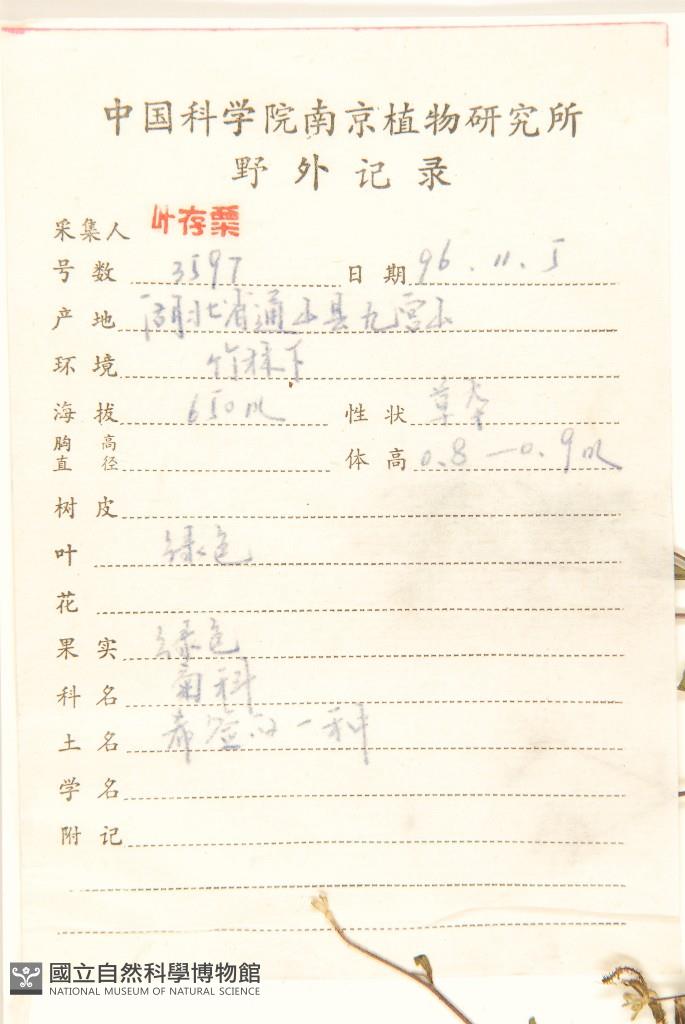 中国科学院南京植物研究所
野外记录
采集人 叶存粟
号数 3597 日期 96.11.5
产地 湖北省通山县九宫山
环境 竹林下
海拔 650m 性状 草本
胸高直径 体高 0.8—0.9m
树皮
叶 绿色
花
果实 绿色
科名 菊科
土名 希莶的一种
学名
附记
國立自然科學博物館
NATIONAL MUSEUM OF NATURAL SCIENCE